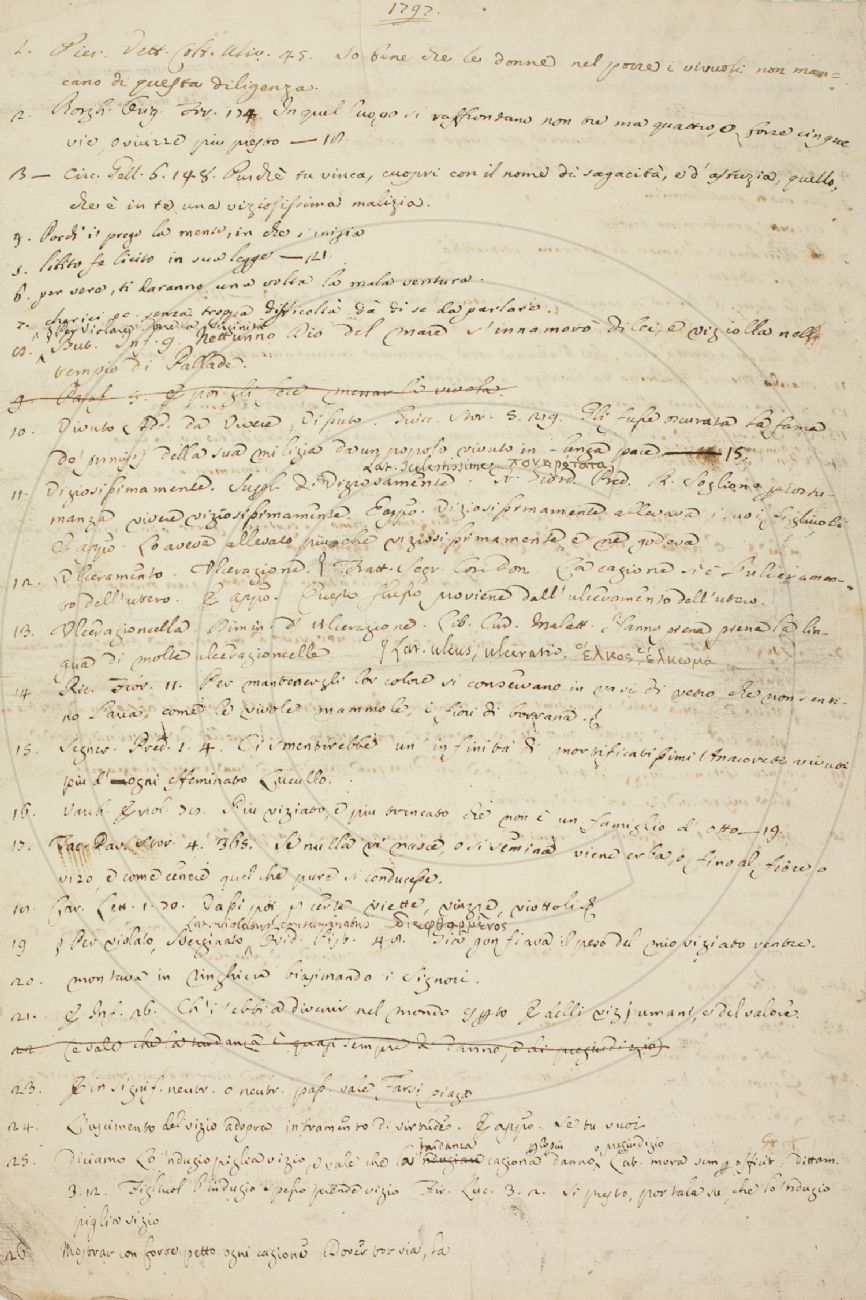 1797.
1. Pier. Vett. Colt. Uliv. 45. So bene che le donne nel porre i vivuoli non man=
cano di questa diligenza.
2. Borgh. Orig. Fir. 174. In quel luogo si raffrontano non tre ma quattro, e forse cinque
vie, o viuzze più presto — 18.
3 — Circ. Gell. 6. 148. Purchè tu vinca, cuopri con il nome di sagacità, e d'astuzia, quello,
che è in te una viziosissima malizia.
4. Pordi ti prego la mente, in che s'inizia
5. libito fe licito in sua legge — 21.
6. per vero, ti daranno una volta la mala ventura.
7. senza troppa difficoltà dà di se da parlare.
§ Per Violare
8. But. Inf. 9. Nettunno Dio del mare s'innamorò di lei, e viziolla nell
tempio di Pallade.
9. e poi gli fece menar la vivola.
10. Vivuto Add. da Vivere, Vissuto. Guicc. Stor. 5. 219. Gli fusse oscurata la fama
de' principj della sua milizia da un popolo vivuto in lunga pace — 15.
Lat. scelestissime,
11. Viziosissimamente. Superl. di Viziosamente. Fr. Giord. Pred. R. Sogliono per costu-
manza vivere viziosissimamente. E appo. Viziosissimamente allevava i suoi figliuoli
E appo. Lo aveva allevato più che viziosissimamente, e ne godeva
12. Ulceramento. Ulcerazione. § Tratt. Segr. Cos. Don. La cagione si è l'ulceramen-
to dell'utero. E appo. Questo flusso proviene dall'ulceramento dell'utero.
13. Ulcerazioncella. Dimin. d'Ulcerazione. Lib. Cur. Malatt. Hanno piena piena la lin-
gua di molte ulcerazioncelle § Lat. ulcus, ulceratio, ἕλκος, ἕλκωμα
14. Ric. Fior. 11. Per mantenergli lor colore si conservano in vasi di vetro che non senti-
no l'aria, come le vivole mammole, i fiori di borrana.
15. Segner. Pred. 1. 4. Ci smentirebbe un' infinità di mortificatissimi Anacoreti vivuti
più d'ogni effeminato Lucullo.
16. Varch. Ercol. 70. Più viziato, e più trincato che non è un famiglio d'otto — 19.
17. Tac. Dav. Stor. 4. 365. Se nulla vi nasce, o si semina viene erba, o fino al fiore o
vizo, e come cenere quel che pure si conducesse.
18. Car. Lett. 1. 70. Passi poi per certe viette, viuzze, viottoli
Lat. violatus, contaminatus διεφθαρμένος
19. § Per violato, Sverginato, Ovid. Pist. 48. Già gonfiava il peso del mio viziato ventre.
20. montava in ringhiera biasimando i Signori.
21. E Inf. 26. Ch'i' ebbi a divenir nel mondo esperto E delli vizj umani, e del valore.
22. (e vale che la tardanza è quasi sempre di danno, e di pregiudizio)
23. E in signif. neutr. o neutr. pass. vale Farsi piaga
24. L'uscimento del vizio adopra intramento di virtude. E appo. Se tu vuoi
tardanza per lo più o pregiudizio
25. Diciamo Lo 'ndugio piglia vizio, e vale che la cagiona danno, Lat. mora semper officit. Dittam.
3. 12. Figliuol l'indugio spesso prende vizio Fir. Luc. 3. 2. Sì presto, portala su, che lo 'ndugio
piglia vizio
26 Mostrar con forte petto ogni cagione Dover tor via, la